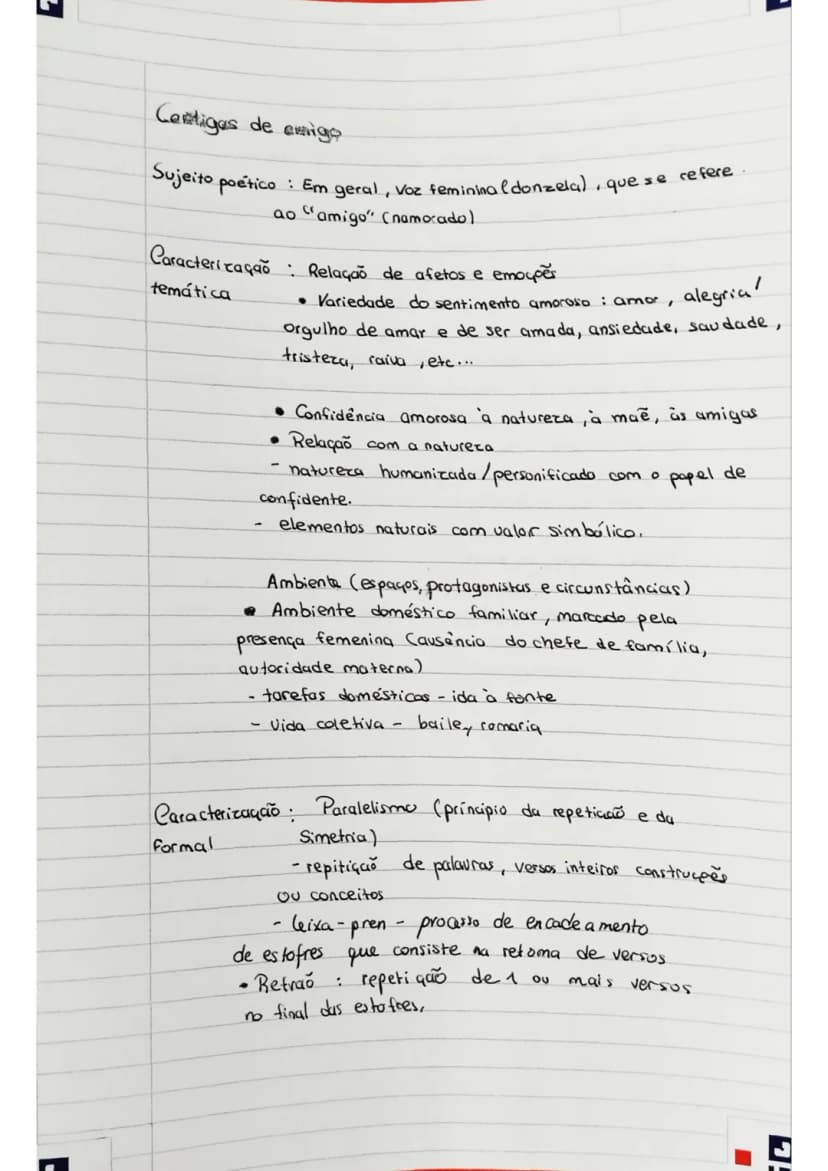 Cantigas de amigo
Sujeito poético : Em geral, voz feminina (donzela), que se refere
ao "amigo" (namorado)
Caracterização : Relação de afetos e emoções
temática
• Variedade do sentimento amoroso : amor, alegria/
orgulho de amar e de ser amada, ansiedade, saudade,
tristeza, raiva, etc...
• Confidência amorosa à natureza, à mãe, às amigas
• Relação com a natureza
- natureza humanizada/personificado com o papel de
confidente.
- elementos naturais com valor simbólico.
Ambiente (espaços, protagonistas e circunstâncias)
• Ambiente doméstico familiar, marcado pela
presença femenina (ausência do chefe de família,
autoridade materna)
- tarefas domésticas - ida à fonte
- vida coletiva - baile, romaria
Caracterização : Paralelismo (príncipio da repetição e da
formal Simetria)
- repitição de palavras, versos inteiros construções
ou conceitos
- leixa-pren - processo de encadeamento
de estofres que consiste na retoma de versos
• Refrão : repetição de 1 ou mais versos
no final das estofres.